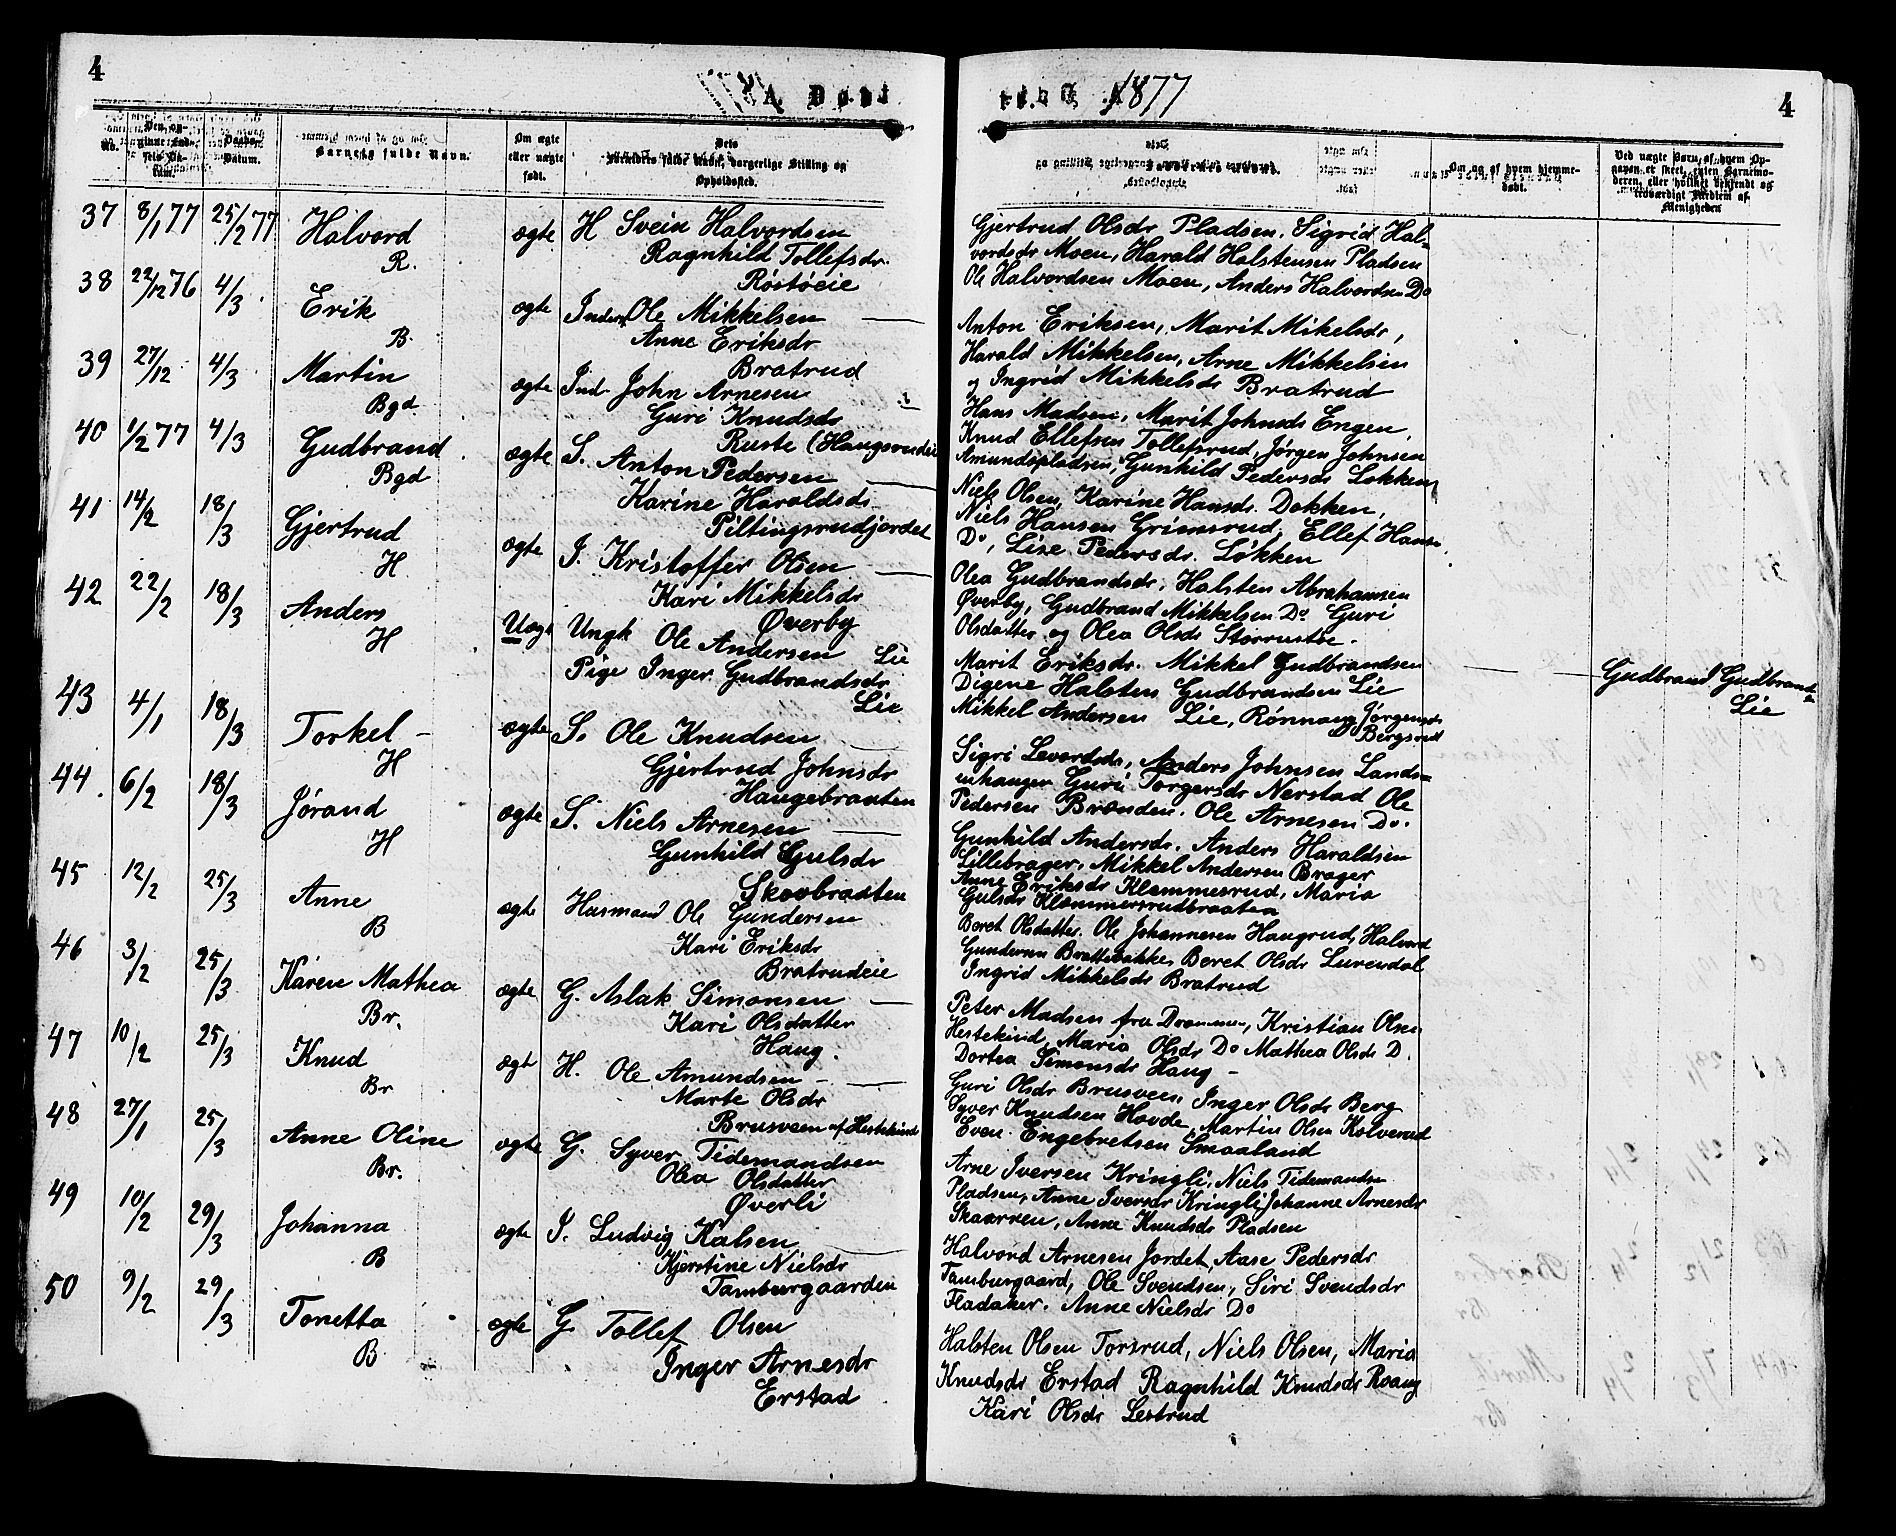 4
A Døbt 1877
4
No.
Barnets fulde Navn.
Om ægte eller uægte født.
Forældres fulde Navn, borgerlige Stilling og Opholdssted.
Om og af hvem hjemmedøbt.
Ved uægte Børn, af hvem Opgaven er skeet, enten Barnemoderen, eller hvilket bekjendt og troværdigt Medlem af Menigheden
37 8/1 77 25/2 77 Halvord R. ægte H Svein Halvordsen
Ragnhild Tollefsdr.
Røstøeie
Gjertrud Olsdr Pladsen. Sigrid Hal-
vordsdr Moen, Harald Halstensen Pladsen
Ole Halvordsen Moen, Anders Halvordsen Do
38 22/12 76 4/3 Erik B. ægte Inderst Ole Mikkelsen
Anne Eriksdr
Bratrud
Anton Eriksen, Marit Mikelsdr,
Harald Mikkelsen, Arne Mikkelsen
og Ingrid Mikkelsdr Bratrud
39 27/12 4/3 Martin Bgd ægte Ind. John Arnesen
Guri Knudsdr
Ruste (Haugsrudeie
Hans Madsen, Marit Johnsdr Engen,
Knud Ellefsen Tollefsrud, Jørgen Johnsen
Amundspladsen, Gunhild Pedersdr Løkken
40 1/2 77 4/3 Gudbrand Bgd ægte S. Anton Pedersen
Karine Haraldsdr
Piltingsrudjordet
Niels Olsen, Karine Hansdr. Dokken,
Niels Hansen Grimsrud, Ellef Hansen
Do, Lise Pedersdr. Løkken
41 14/2 18/3 Gjertrud H. ægte I. Kristoffer Olsen
Kari Mikkelsdr
Øverby
Olea Gudbrandsdr, Halsten Abrahamsen
Øverby, Gudbrand Mikkelsen Do Guri
Olsdatter og Olea Olsdr Storrustøe.
42 22/2 18/3 Anders H Uægt Ungk Ole Andersen Lie
Pige Inger Gudbrandsdr
Lie
Marit Eriksdr. Mikkel Gudbrandsen
Digene Halsten Gudbrandsen Lie
Mikkel Andersen Lie, Rønnaug Jørgensdr
Bergsrud
Gudbrand Gudbrands
Lie
43 4/1 18/3 Torkel H ægte S. Ole Knudsen
Gjertrud Johnsdr
Haugebraaten
Sigri Levordsdr, Anders Johnsen Lands-
enhaugen Guri Torgersdr Nerstad Ole
Pedersen Brænden. Ole Arnesen Do.
44. 6/2 18/3 Jørand H ægte S. Niels Arnesen
Gunhild Gulsdr
Skovbraaten
Gunhild Andersdr. Anders Haraldsen
Lillebrager, Mikkel Andersen Brager
Anne Eriksdr Klemmesrud, Maria
Gulsdr Klæmmersrudbraaten
45 12/2 25/3 Anne B ægte Husmand Ole Gundersen
Kari Eriksdr
Bratrudeie
Beret Olsdatter. Ole Johannesen Haugrud, Halvord
Gundersen Brattebakke, Beret Olsdr Lurendal
Ingrid Mikkelsdr Bratrud
46 3/2 25/3 Karen Mathea Br. ægte G. Aslak Simonsen
Kari Olsdatter
Haug.
Peter Madsen fra Drammen, Kristian Olsen
Hestekind, Maria Olsdr Do Mathea Olsdr D.
Dortea Simonsdr Haug -
47 10/2 25/3 Knud Br ægt H. Ole Amundsen
Marte Olsdr
Brusveen af Hestekind
Guri Olsdr Brusveen Inger Olsdr Berg
Syver Knudsen Hovde, Martin Olsen Kolverud
Even Engebretsen Smaaland
48 27/1 25/3 Anne Oline Br. ægte G. Syver Tidemandsen
Olea Olsdatter
Øverli
Arne Iversen Kringli, Niels Tidemandsen
Pladsen, Anne Iversdr Kringli, Johanne Arnesdr
Skaarren, Anne Knudsdr Pladsen
49 10/2 29/3 Johanna B ægte I. Ludvig Kalsen
Kjerstine Nielsdr
Tamburgaarden
Halvord Arnesen Jordet, Aase Pedersdr
Tamburgaard, Ole Svendsen, Siri Svendsdr
Fladaker. Anne Nielsdr Do
50 9/2 29/3 Tonetta B. ægte G. Tollef Olsen
Inger Arnesdr
Erstad
Halsten Olsen Torsrud, Niels Olsen, Maria
Knudsdr Erstad Ragnhild Knudsdr Roang
Kari Olsdr Lestrud